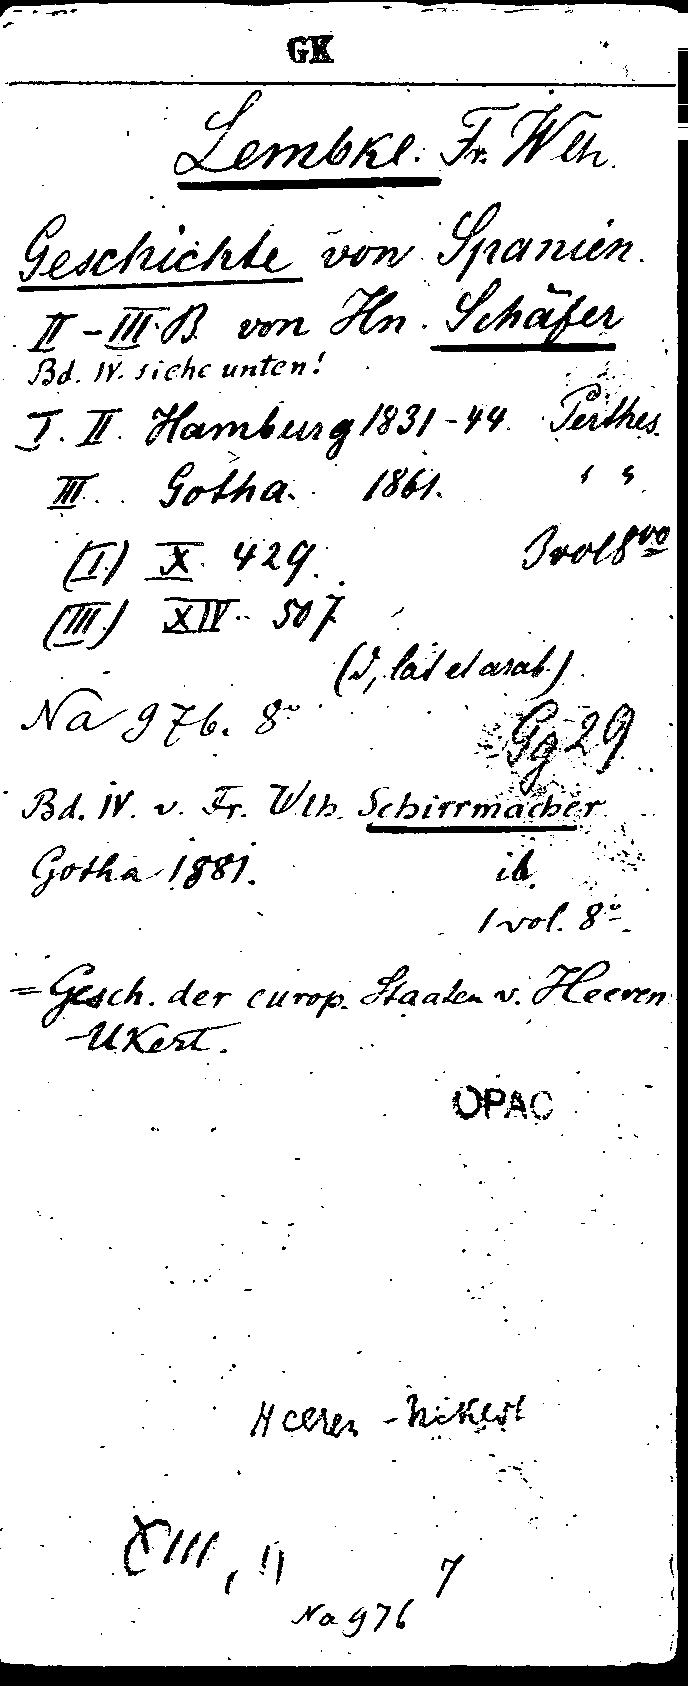 GK
Lembke. Fr. Wlh.
Geschichte von Spanien.
II - III. B. von Hn. Schäfer
Bd. IV. siehe unten!
I. II. Hamburg 1831-44. Perthes.
III. Gotha. 1861. " "
(I.) X. 429. 3 vol 8vo
(III.) XIV. 507.
(D, lat et arab.)
Na 976. 8° Gg 29
Bd. IV. v. Fr. Wlh. Schirrmacher
Gotha 1881. ib.
1 vol. 8°.
= Gesch. der europ. Staaten v. Heeren
-Ukert.
OPAC
Heeren - Uckert
XIII, 1) 7
Na 976